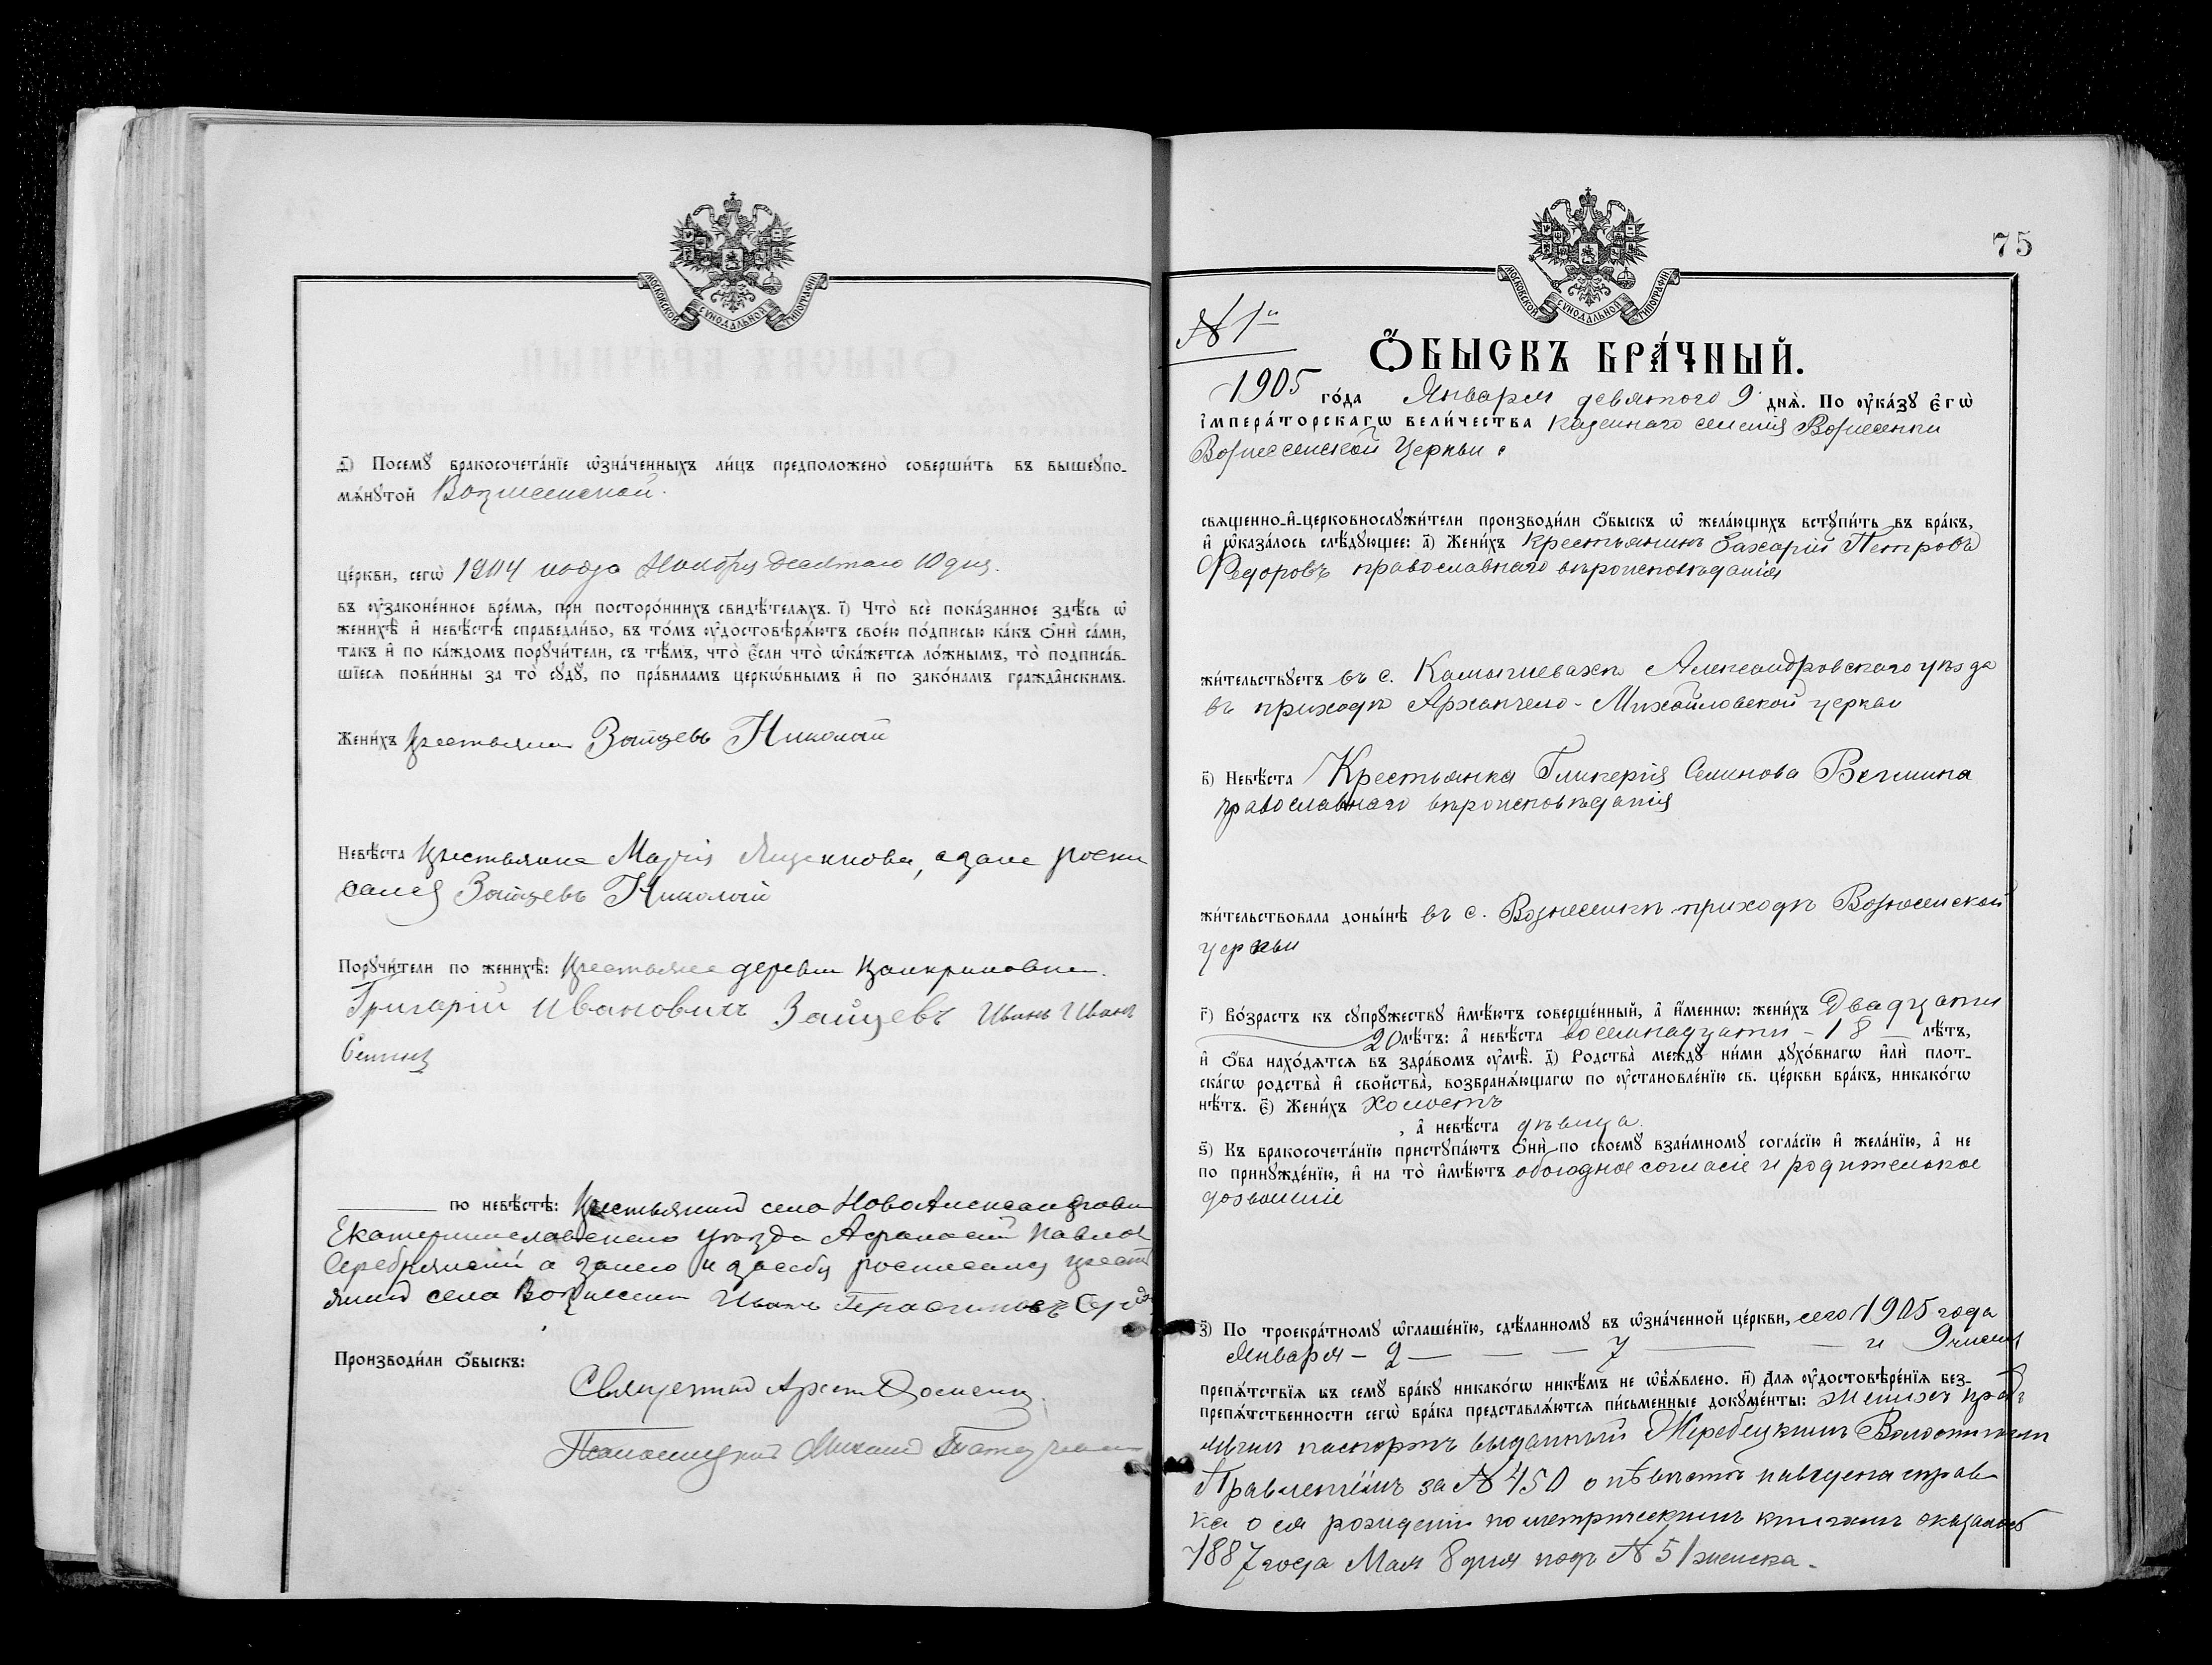 МОСКОВСКОЙ СѴНОДАЛЬНОЙ ТИПОГРАФІИ
ѳ҃) Посемꙋ̀ бракосочета́нїе ѡ҆зна́ченныхъ ли́цъ предположено̀ соверши́ть въ вышеꙋпо-
мѧ́нꙋтой Вознесенской.
це́ркви, сегѡ̀ 1904 года Ноября десятаго 10 дня.
въ ᲂу҆зако́не́нное вре́мѧ, при посторо́ннихъ свидѣ́телѧхъ. і҃) Что̀ всѐ пока́занное здѣ́сь ѡ҆
женихѣ̀ и҆ невѣ́стѣ справедли́во, въ то́мъ ᲂу҆достовѣрѧ́ютъ свое́ю по́дписью ка́къ ѻ҆нѝ са́ми,
та́къ и҆ по ка́ждомъ порꙋчи́тели, съ тѣ́мъ, что̀ є҆́сли что̀ ѡ҆ка́жетсѧ ло́жнымъ, то̀ подписа́в-
шїесѧ пови́нны за то̀ сꙋдꙋ̀, по пра́виламъ церкѡ́внымъ и҆ по зако́намъ гражда̑нскимъ.
Жени́хъ крестьянин Зайцевъ Николай
Невѣ́ста крестьянка Марія а за нее роспи
сался Зайцевъ Николай
Порꙋчи́тели по женихѣ̀: крестьяне деревни
Григорій Ивановичъ Зайцевъ Иванъ Иванъ
по невѣ́стѣ: Крестьянинъ села НовоАлександровки
Екатеринославскаго уѣзда Афанасій Павловъ
Серебрянскій а за него и за себя росписался крест
янинъ села Вознесенки Иванъ Герасимовъ
Производи́ли ѻ҆́быскъ:
Священникъ
Псаломщикъ Михаилъ
75
МОСКОВСКОЙ СѴНОДАЛЬНОЙ ТИПОГРАФІИ
№ 1й
Ѻ҆́БЫСКЪ БРА́ЧНЫЙ.
1905 го́да Января девятаго 9 днѧ̀. По ᲂу҆ка́зꙋ є҆гѡ̀
і҆мпера́торскагѡ вели́чества казеннаго селенія Вознесенки
Вознесенской Церкви
свѧщенно-и҆-церковнослꙋжи́тели производи́ли ѻ҆́быскъ ѡ҆ жела́ющихъ встꙋпи́ть въ бра́къ,
и҆ ѡ҆каза́лось слѣ́дꙋющее: а҃) Жени́хъ Крестьянинъ Захарій Петровъ
Федоровъ православнаго вѣроисповѣданія
жи́тельствꙋетъ въ с. Камышевахѣ Александровскаго уѣзда
въ приходѣ Архангело-Михайловской церкви
в҃) Невѣ́ста Крестьянка Гликерія Семинова
православнаго вѣроисповѣданія
жи́тельствовала доны́нѣ въ с. Вознесенкѣ приходѣ Вознесенской
церкви
г҃) Во́зрастъ къ сꙋпрꙋ́жествꙋ и҆мѣ́ютъ соверше́нный, а҆ и҆́менно: жени́хъ Двадцати
20 лѣ́тъ: а҆ невѣ́ста восемнадцати - 18 лѣ́тъ,
и҆ ѻ҆́ба нахо́дѧтсѧ въ здра́вомъ ᲂу҆мѣ̀. д҃) Родства̀ междꙋ̀ ни́ми дꙋхо́внагѡ и҆лѝ плот-
ска́гѡ родства̀ и҆ сво́йства̀, возбранѧ́ющагѡ по ᲂу҆становле́нїю св. це́ркви бра́къ, никако́гѡ
нѣ́тъ. є҃) Жени́хъ Холостъ
, а҆ невѣ́ста дѣвица.
ѕ҃) Къ бракосочета́нїю пристꙋпа́ютъ ѻ҆нѝ по своемꙋ̀ взаи́мномꙋ согла́сїю и҆ жела́нїю, а҆ не
по принꙋжде́нїю, и҆ на то̀ и҆мѣ́ютъ обоюдное согласіе и родительское
дозволеніе
з҃) По троекра́тномꙋ ѡ҆глаше́нїю, сдѣ́ланномꙋ въ ѡ҆зна́ченной це́ркви, сего 1905 года
Января - 2 — — — 7 — — и 9 чиселъ
препѧ́тствїѧ къ семꙋ̀ бра́кꙋ никако́гѡ никѣ́мъ не ѡ҆б̾ѧ́влено. и҃) Длѧ ᲂу҆достовѣре́нїѧ без-
препѧ́тственности сегѡ̀ бра́ка представлѧ́ютсѧ пи́сьменные докꙋме́нты: Женихъ предъ
явилъ паспортъ выданный Жеребецкимъ Волостнымъ
Правленіемъ за № 450 о невѣстѣ наведена справ
ка о ея рожденіи по метрическимъ книгамъ оказалось
1887 года Мая 8 дня подъ № 51 женска.